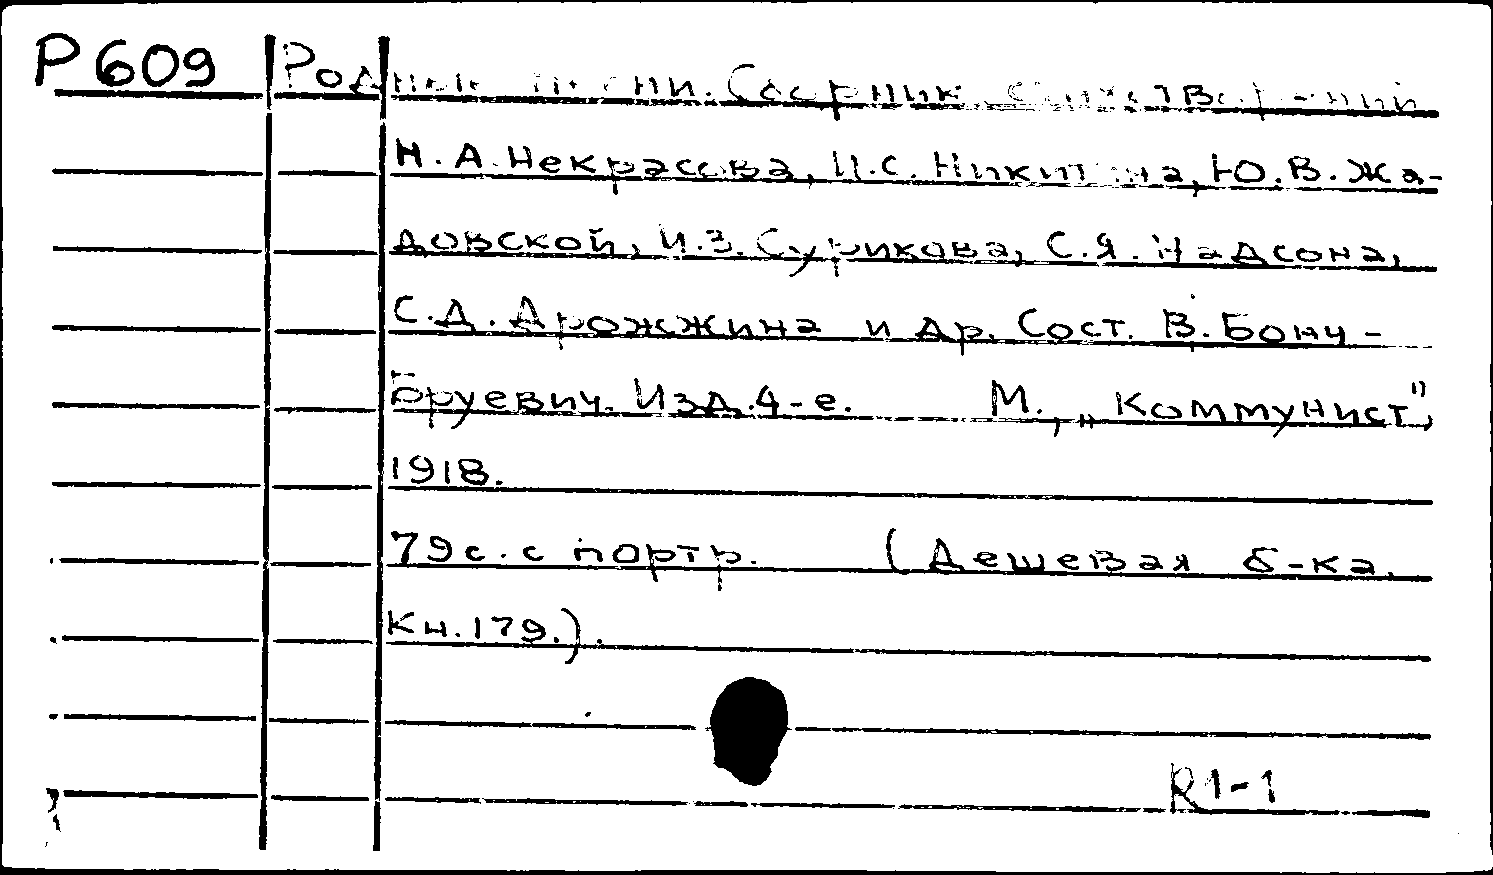 Р609 Родные песни. Сборник стихотворений
Н.А.Некрасова, И.С.Никитина, Ю.В.Жа-
довской, И.З.Сурикова, С.Я.Надсона,
С.Д.Дрожжина и др. Сост. В.Бонч-
Бруевич. Изд.4-е. М., „Коммунист",
1918.
79с. с портр. (Дешевая б-ка.
Кн.179.).
R1-1